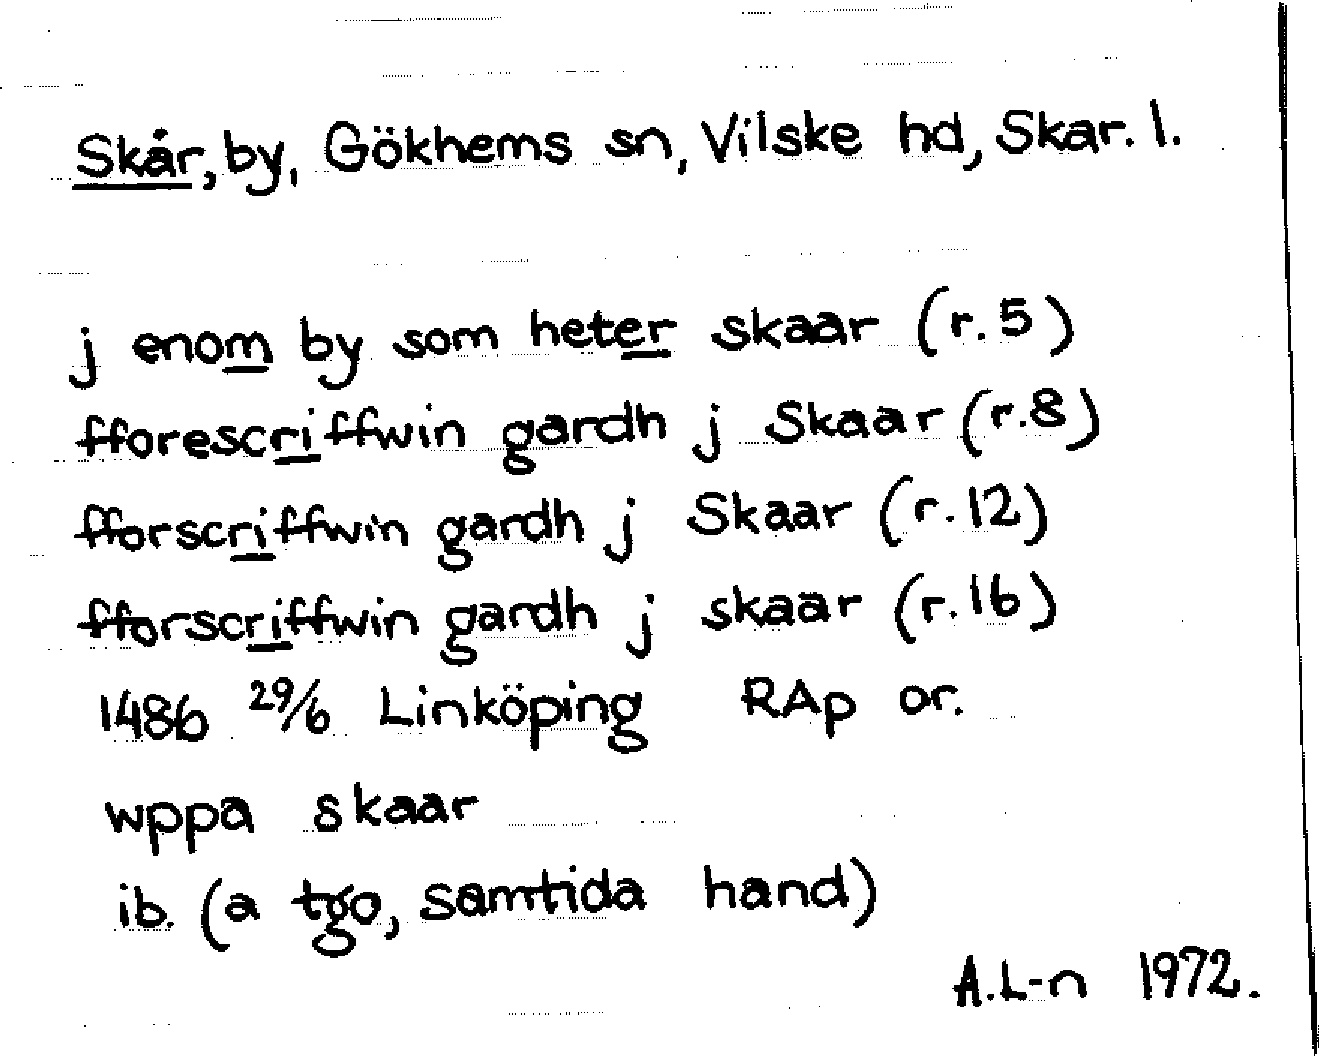 Skår, by, Gökhems sn, Vilske hd, Skar. l.
j enom by som heter skaar (r. 5)
fforescriffwin gardh j Skaar (r. 8)
fforscriffwin gardh j Skaar (r. 12)
fforscriffwin gardh j skaar (r. 16)
1486 29/6 Linköping RAp or.
wppa skaar
ib. (a tgo, samtida hand)
A. L-n 1972.